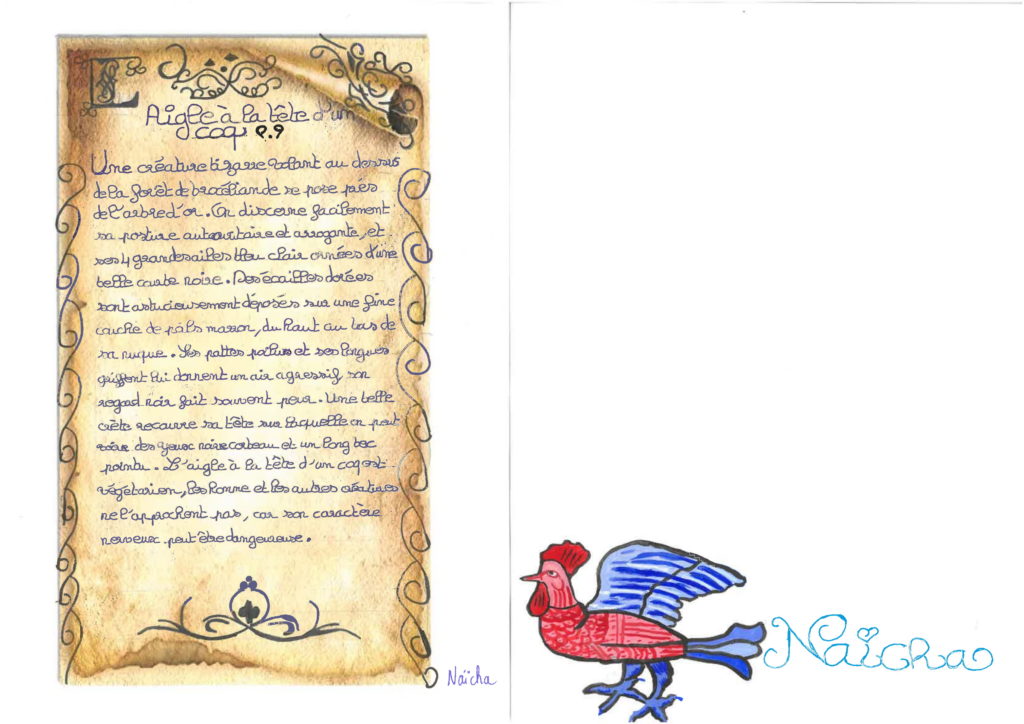 L
Aigle à la tête d'un
coq P.9
Une créature bizarre volant au dessus
de la forêt de brocéliande se pose près
de l'arbre d'or. On discerne facilement
sa posture autauritaire et arrogante, et
ses 4 grandes ailes bleu clair ornées d'une
belle courbe noire. Des écailles dorées
sont astucieusement déposés sur une fine
couche de poils marron, du haut au bas de
sa nuque. Ses pattes poilues et ses longues
griffent lui donnent un air agressif son
regard noir fait souvent peur. Une belle
crète recouvre sa tête sur laquelle on peut
voire des yeux noire corbeau et un long bec
pointu. L'aigle à la tête d'un coq est
végétarien, les homme et les autres créatures
ne l'approchent pas, car son caractère
nerveux peut être dangereuse.
Naïcha
Naïcha